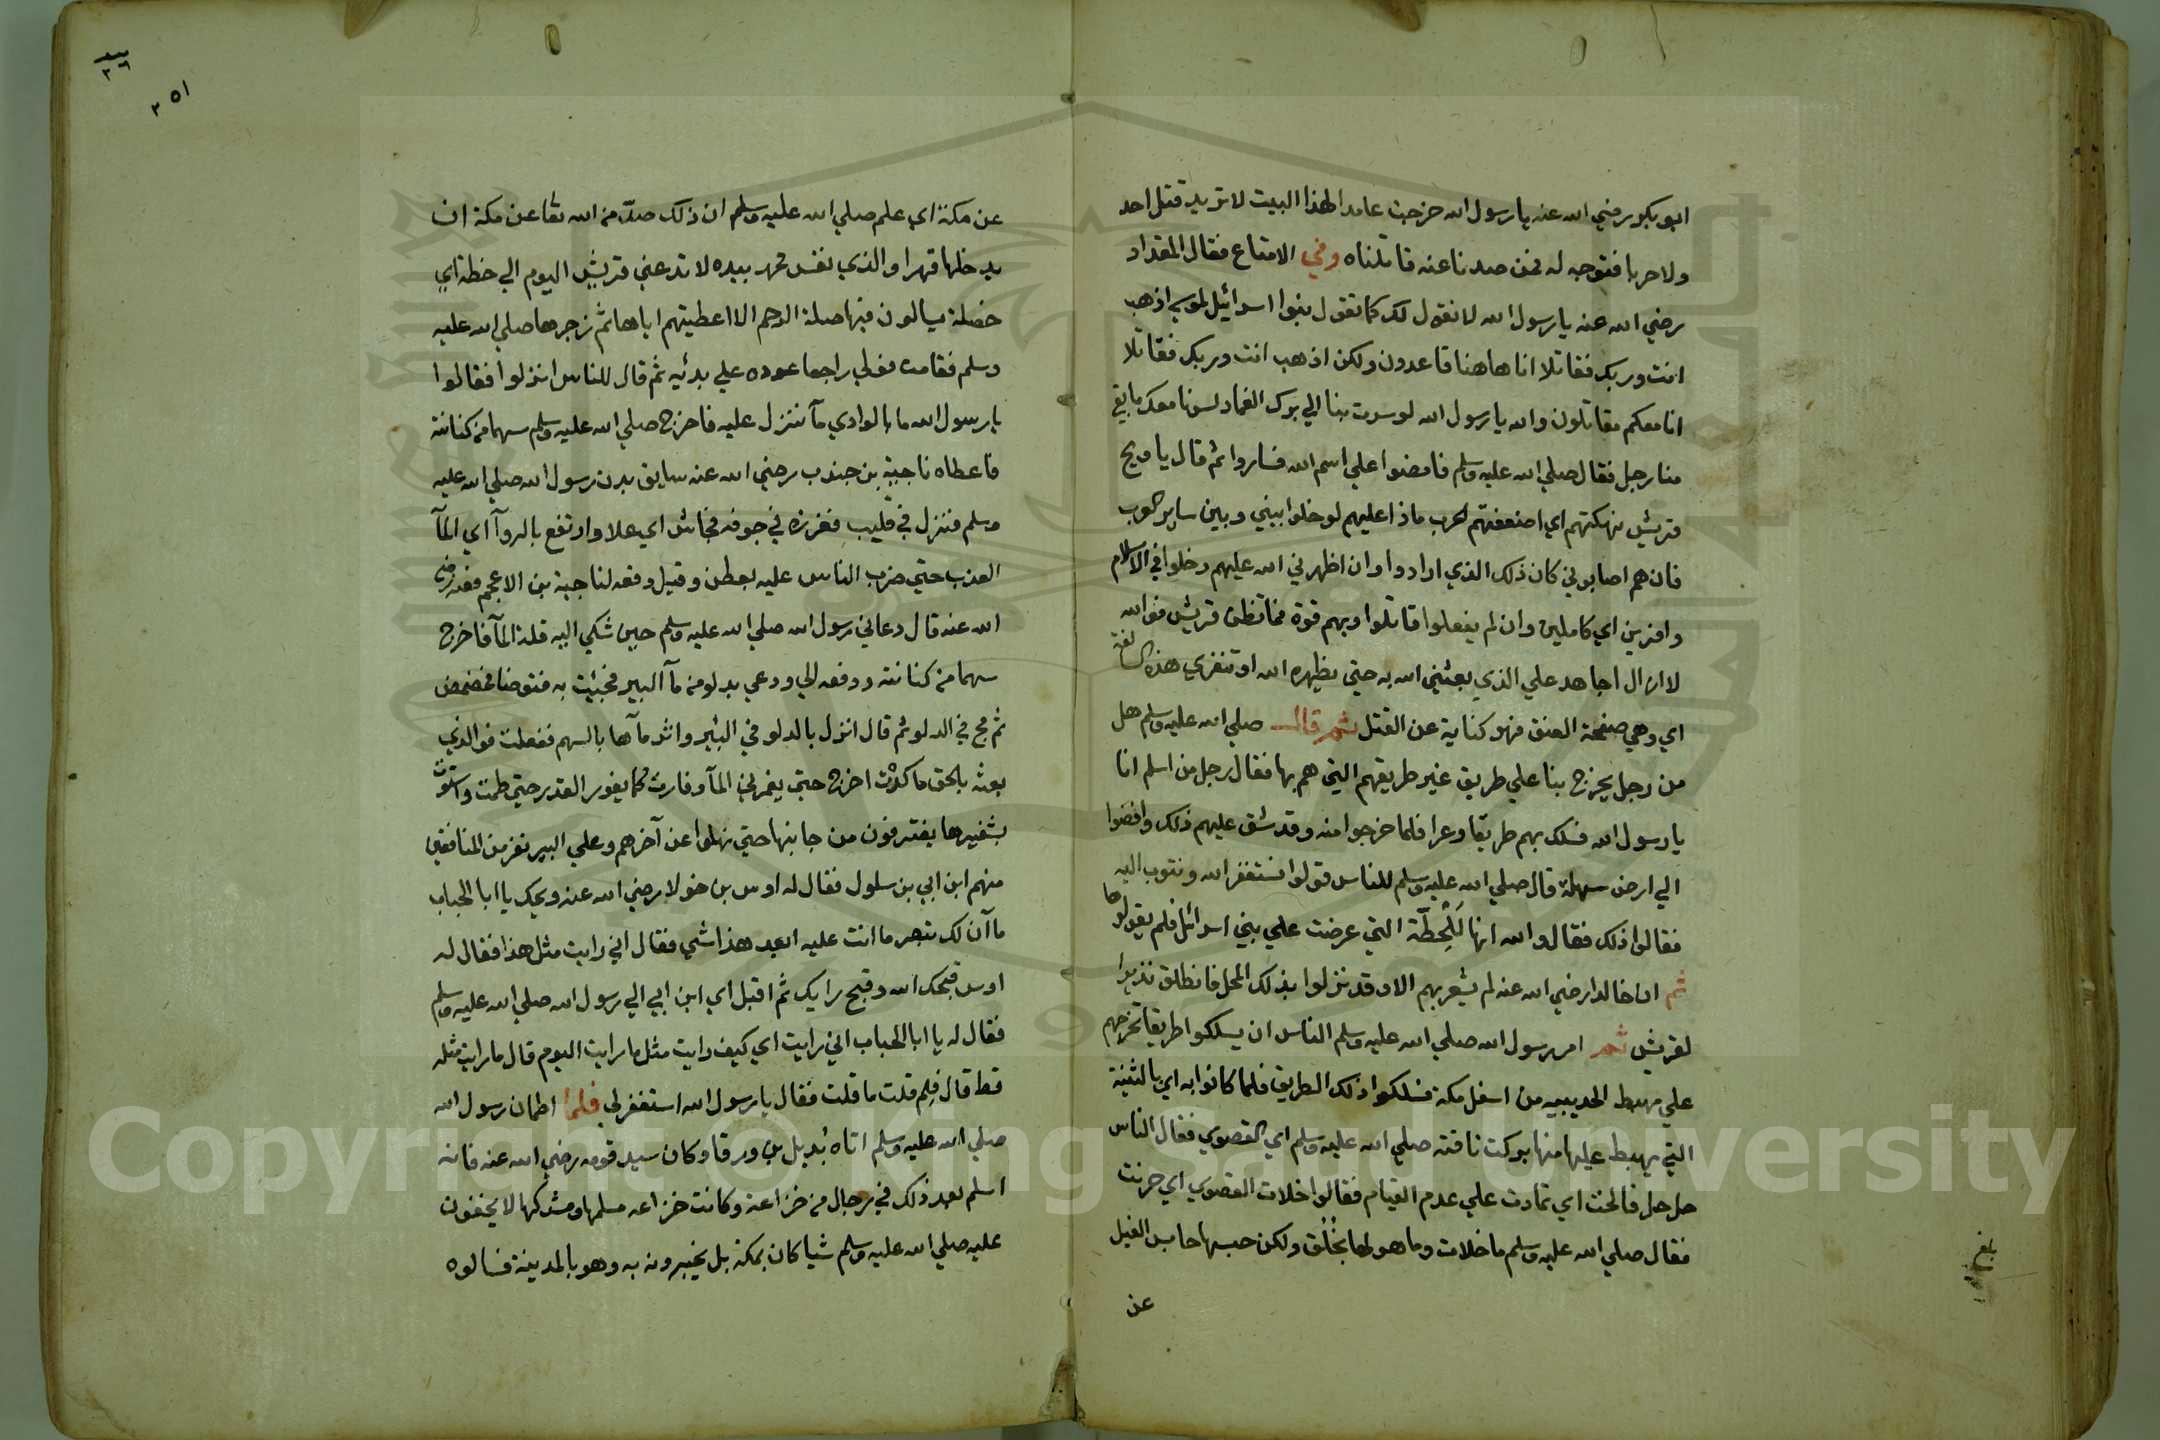 ابو بكر رضي الله عنه يا رسول الله خرجت عامدا لهذا البيت لا تريد قتل احد
ولا حربا فتوجه له فمن صدنا عنه قاتلناه وفي الامتاع فقال المقداد
رضي الله عنه يا رسول الله لا نقول لك كما تقول بنوا اسرائيل لموسي اذهب
انت وربك فقاتلا انا هاهنا قاعدون ولكن اذهب انت وربك فقاتلا
انا معكم مقاتلون والله يا رسول الله لو سرت بنا الي برك الغماد لسرنا معك ما بقي
منا رجل فقال صلي الله عليه وسلم فامضوا علي اسم الله فساروا ثم قال يا ويح
قريش نهكتهم اي اضعفتهم الحرب ماذا عليهم لو خلوا بيني وبين ساير العرب
فان هم اصابوني كان ذلك الذي ارادوا وان اظهرني الله عليهم دخلوا في الاسلام
وافرين اي كاملين وان لم يفعلوا قاتلوا وبهم قوة فما تظن قريش فوالله
لا ازال اجاهد علي الذي بعثني الله به حتي يظهره الله او تنفرد هذه السالفة
اي وهي صفحة العنق فهو كناية عن القتل ثم قال صلي الله عليه وسلم هل
من رجل يخرج بنا علي طريق غير طريقهم التي هم بها فقال رجل من اسلم انا
يا رسول الله فسلك بهم طريقا وعرا فلما خرجوا منه وقد شق عليهم ذلك وافضوا
الي ارض سهلة قال صلي الله عليه وسلم للناس قولوا نستغفر الله ونتوب اليه
فقالوا ذلك فقال والله انها لَلْحِطّة التي عرضت علي بني اسرائل فلم يقولوها
ثم ان خالدا رضي الله عنه لم يشعر بهم الا وقد نزلوا بذلك المحل فانطلق نذيرا
لقريش ثم امر رسول الله صلي الله عليه وسلم الناس ان يسلكوا طريقا تخرجهم
علي مهبط الحديبيه من اسفل مكة فسلكوا ذلك الطريق فلما كانوا به اي بالثنية
التي يهبط عليها منها بركت ناقته صلي الله عليه وسلم اي القصوي فقال الناس
حل حل فالحت اي تمادت علي عدم القيام فقالوا خلات القصوي اي حرنت
فقال صلي الله عليه وسلم ما خلات وما هو لها بخُلُق ولكن حبسها حابس الفيل
عن
بلغ
٣٦
٢٥١
عن مكة اي علم صلي الله عليه وسلم ان ذلك صدّ من الله تعا عن مكة ان
يدخلها قهرا والذي نفس محمد بيده لا تدعني قريش اليوم الي خطة اي
خصلة يسالون فيها صلة الرحم الا اعطيتهم اياها ثم زجرها صلي الله عليه
وسلم فقامت فولي راجعا عوده علي بدئيه ثم قال للناس انزلوا فقالوا
يا رسول الله ما بالوادي مآ ننزل عليه فاخرج صلي الله عليه وسلم سهما من كنانته
فاعطاه ناجية بن جندب رضي الله عنه سايق بدن رسول الله صلي الله عليه
وسلم فنزل في قليب فغرزه في جوفه فجاش اي علا وارتفع بالروآ اي المآ
العذب حتي ضرب الناس عليه بعطن وقيل دفعه لناجية بن الاعجم فعنه رضي
الله عنه قال دعاني رسول الله صلي الله عليه وسلم حين شكي اليه قلة المآ فاخرج
سهما من كنانته ودفعه الي ودعي بدلو من مآ البير فجئيت به فتوضا فمضمض
ثم مج في الدلو ثم قال انزل بالدلو في البئير وانثر مآها بالسهم ففعلت فوالذي
بعثه بالحق ما كدت اخرج حتي يغمرني المآ وفارت كما يفور القدر حتي طمت واستوت
بشفيرها يغترفون من جانبها حتي نهلوا عن آخرهم وعلي البير نفر من المنافقين
منهم ابن ابي بن سلول فقال له اوس بن خولا رضي الله عنه ويحك يا ابا الحباب
ما آن لك تبصر ما انت عليه ابعد هذا شي فقال اني رايت مثل هذا فقال له
اوس قبحك الله وقبح رايك ثم اقبل اي ابن ابي الي رسول الله صلي الله عليه وسلم
فقال له يا ابا الحباب اني رايت اي كيف رايت مثل ما رايت اليوم قال ما رايت مثله
قط قال فلم قلت ما قلت فقال يا رسول الله استغفر لي فلما اطمان رسول الله
صلي الله عليه وسلم اتاه بُديل بن ورقا وكان سيد قومه رضي الله عنه فانه
اسلم بعد ذلك في رجال من خزاعة وكانت خزاعه مسلمها ومشركها لا يخفون
عليه صلي الله عليه وسلم شيا كان بمكة بل يخبرونه به وهو بالمدينة فسالوه
Copyright © King Saud University